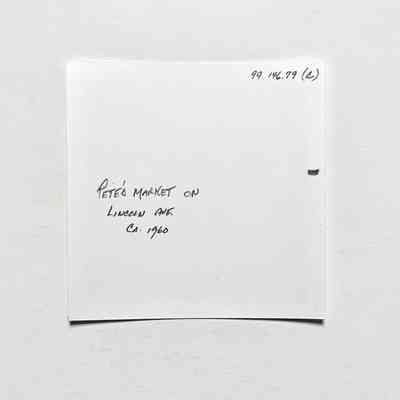 99.146.79 (a)
Pete's Market on
Lincoln Ave.
Ca. 1960